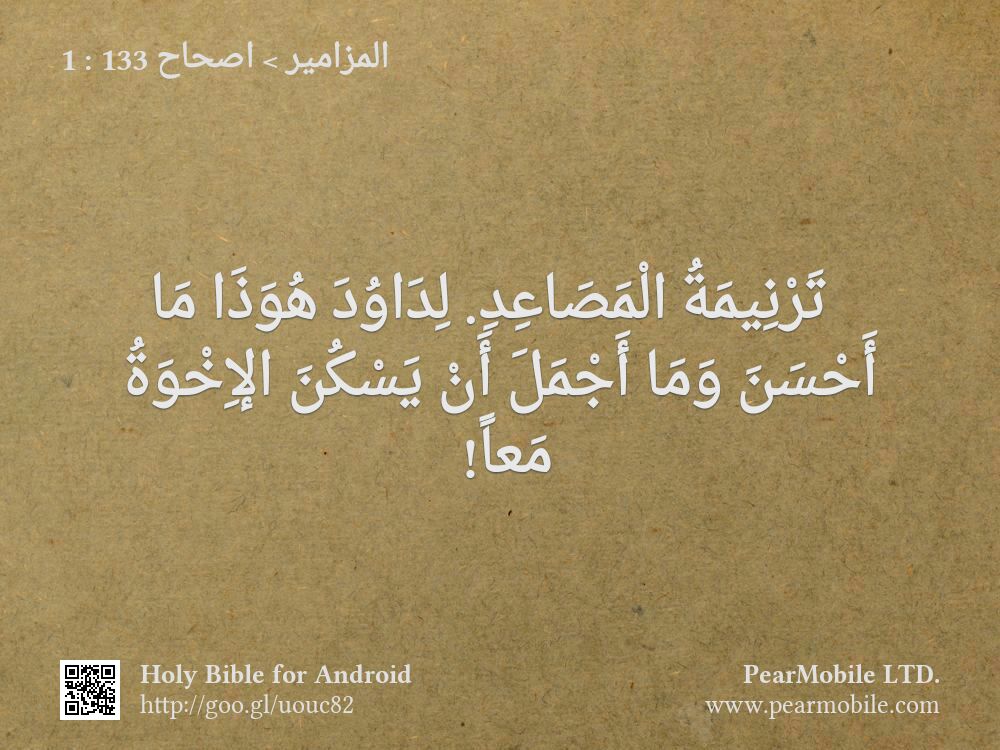 المزامير > اصحاح 133 : 1
تَرْنِيمَةُ الْمَصَاعِدِ. لِدَاوُدَ هُوَذَا مَا
أَحْسَنَ وَمَا أَجْمَلَ أَنْ يَسْكُنَ الإِخْوَةُ
مَعاً!
Holy Bible for Android
http://goo.gl/uouc82
PearMobile LTD.
www.pearmobile.com